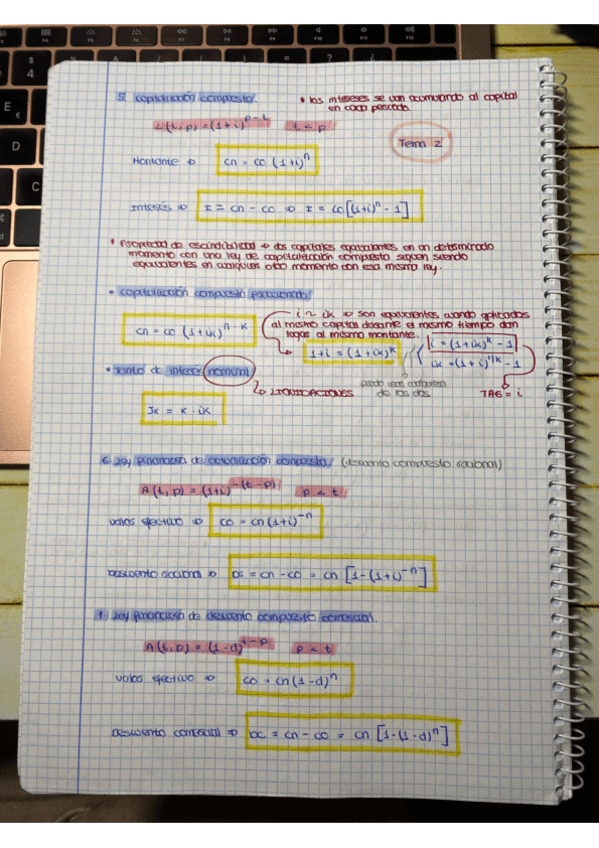 5. capitalización compuesta.
• los intereses se van acumulando al capital
en cada periodo.
L(t,p) = (1+i)^p-t   t < p
Tema 2
Montante ⇒ cn = co (1+i)^n
Interés ⇒ I = cn - co ⇒ I = co[(1+i)^n - 1]
• Propiedad de escindibilidad ⇒ dos capitales equivalentes en un determinado
momento con una ley de capitalización compuesta siguen siendo
equivalentes en cualquier otro momento con esa misma ley.
• capitalización compuesta fraccionada:
i ~ ik ⇒ son equivalentes cuando aplicados
al mismo capital durante el mismo tiempo dan
lugar al mismo montante.
cn = co (1+ik)^n·k
1+i = (1+ik)^k
i = (1+ik)^k - 1
ik = (1+i)^1/k - 1
• Tanto de interés nominal
LIQUIDACIONES
puedo usar cualquiera
de los dos
TAE = i
Jk = k · ik
6. Ley financiera de actualización compuesta. (descuento compuesto racional)
A(t,p) = (1+i)^-(t-p)   p < t
valor efectivo ⇒ co = cn(1+i)^-n
Descuento racional ⇒ Di = cn - co = cn [1-(1+i)^-n]
7. Ley financiera de descuento compuesto comercial.
A(t,p) = (1-d)^t-p   p < t
valor efectivo ⇒ co = cn(1-d)^n
Descuento comercial ⇒ DC = cn - co = cn [1-(1-d)^n]